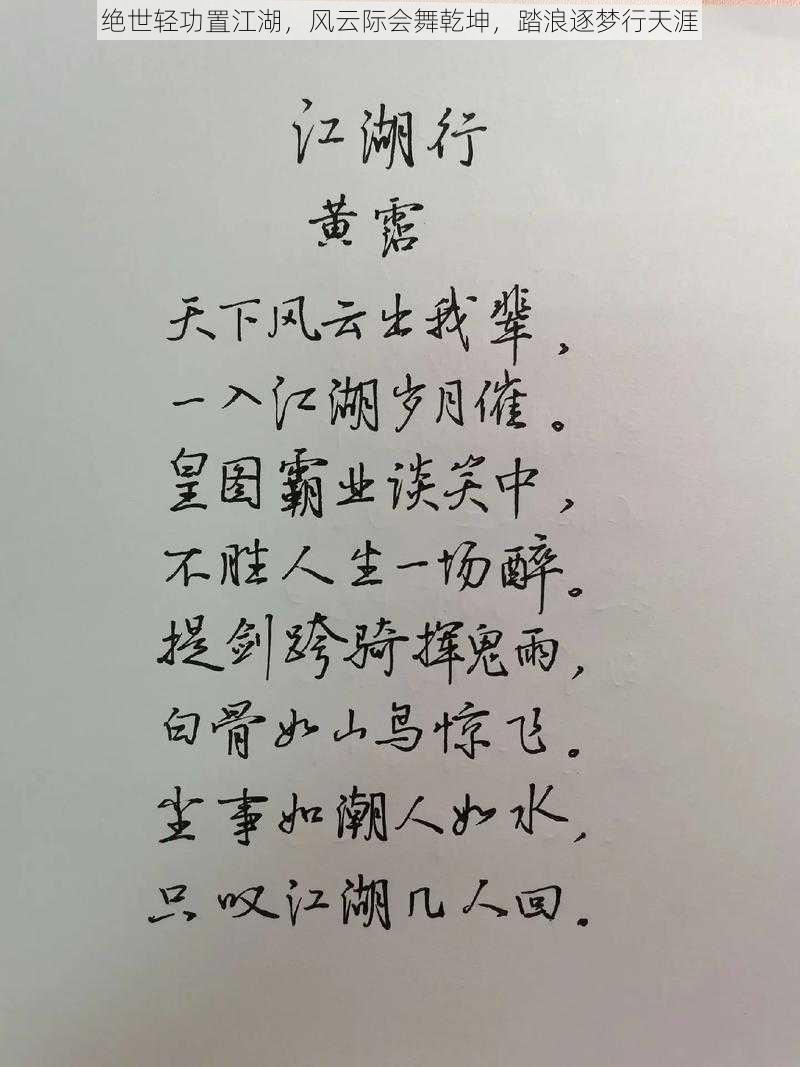 绝世轻功置江湖，风云际会舞乾坤，踏浪逐梦行天涯
江湖行
黄霑
天下风云出我辈，
一入江湖岁月催。
皇图霸业谈笑中，
不胜人生一场醉。
提剑跨骑挥鬼雨，
白骨如山鸟惊飞。
尘事如潮人如水，
只叹江湖几人回。